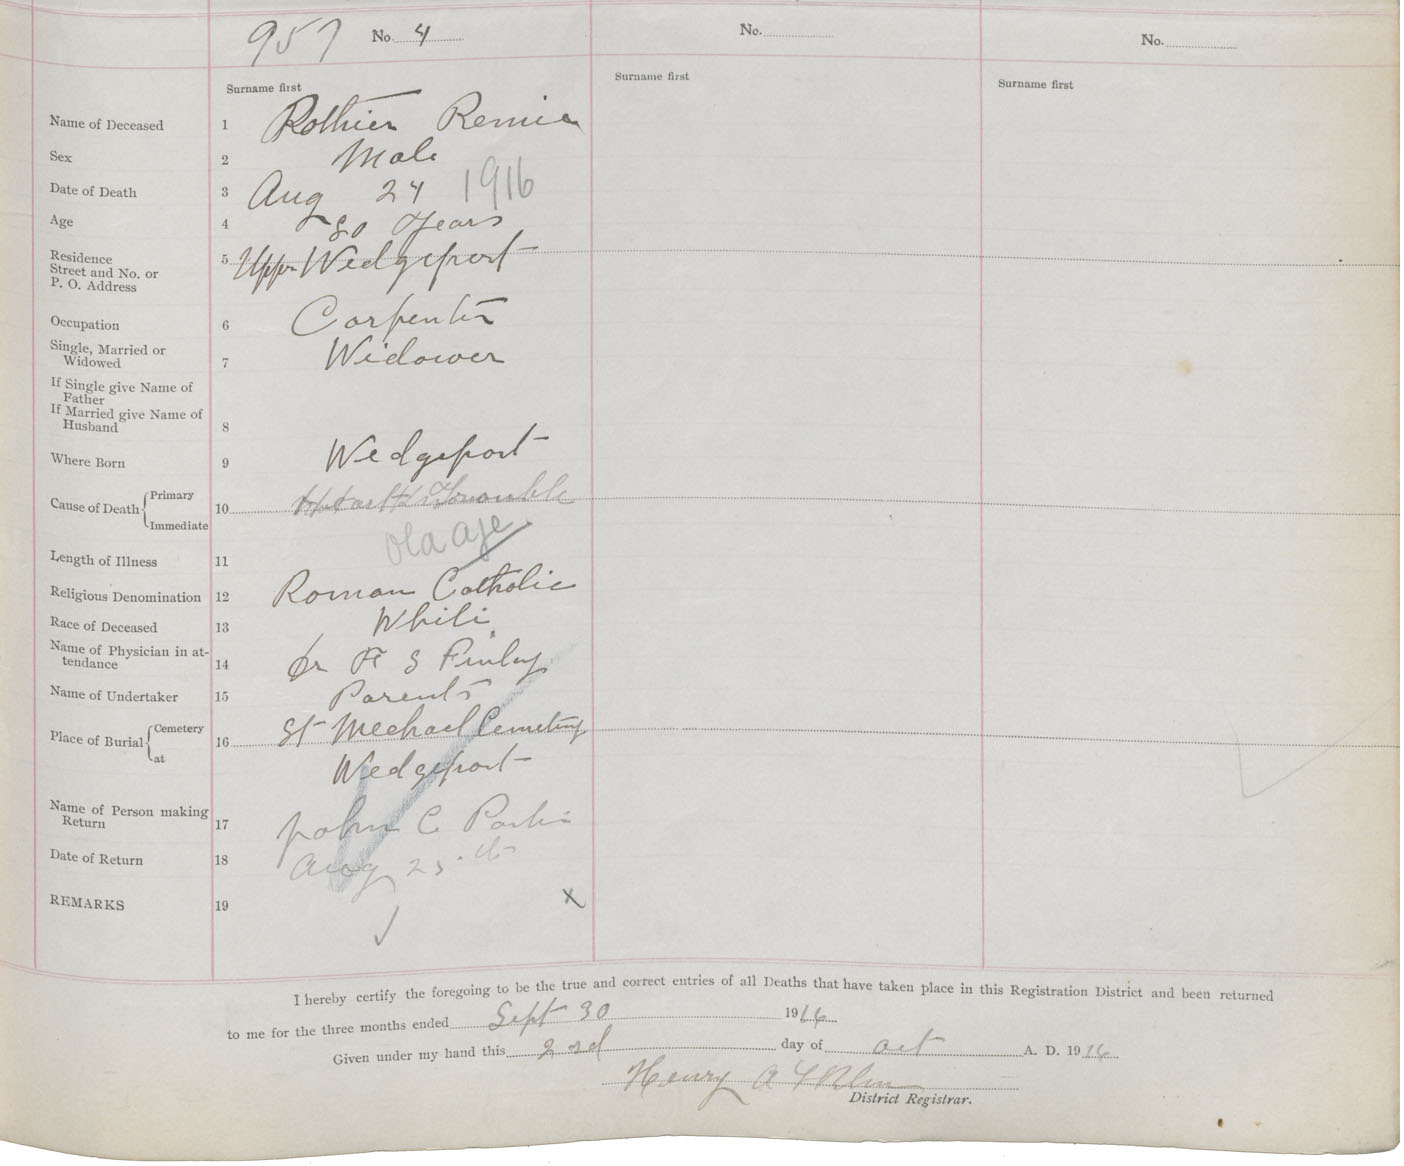 957 No. 4 No. No.
Surname first Surname first Surname first
Name of Deceased 1 Pothier Remie
Sex 2 Male
Date of Death 3 Aug 24 1916
Age 4 80 Years
Residence
Street and No. or
P. O. Address 5 Upper Wedgeport
Occupation 6 Carpenter
Single, Married or
Widowed 7 Widower
If Single give Name of
Father
If Married give Name of
Husband 8
Where Born 9 Wedgeport
Cause of Death Primary
Immediate 10 Heart Trouble
Old age
Length of Illness 11
Religious Denomination 12 Roman Catholic
Race of Deceased 13 White
Name of Physician in at-
tendance 14 Dr A S Finlay
Name of Undertaker 15 Parents
Place of Burial Cemetery
at 16 St Mechael Cemetery
Wedgeport
Name of Person making
Return 17 John C
Date of Return 18 Aug 25th
REMARKS 19 x
I hereby certify the foregoing to be the true and correct entries of all Deaths that have taken place in this Registration District and been returned
to me for the three months ended Sept 30 1916
Given under my hand this 2nd day of Oct A. D. 1916
Henry A
District Registrar.